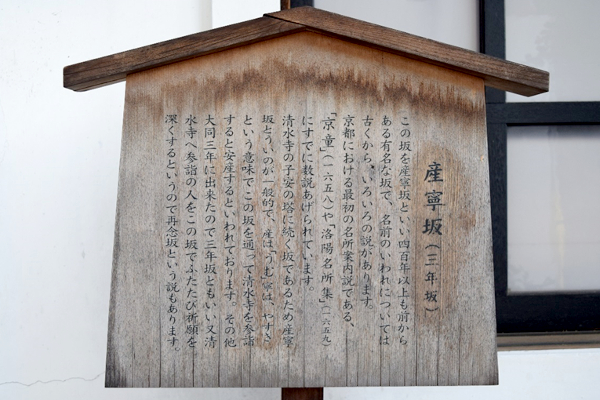 産寧坂(三年坂)
この坂を産寧坂といい四百年以上も前から
ある有名な坂で、名前のいわれについては
古くから、いろいろの説があります。
京都における最初の名所案内説である、
「京童」(一六五八)や「洛陽名所集」(一六五九)
にすでに数説あげられています。
清水寺の子安の塔に続く坂であるため産寧
坂とういのが一般的で、産は「うむ」寧は、「やすき」
という意味でこの坂を通って清水寺を参詣
すると安産するといわれております。その他
大同三年に出来たので三年坂ともいい又清
水寺へ参詣の人をこの坂でふたたび祈願を
深くするというので再念坂という説もあります。